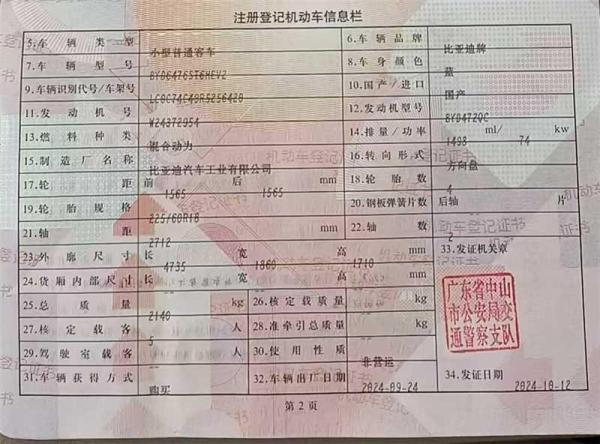 注册登记机动车信息栏
5.车辆类型 小型普通客车 6.车辆品牌 比亚迪牌
7.车辆型号 BYD6476ST6HEV2 8.车身颜色 蓝
9.车辆识别代号/车架号 LC0C74C49R5256420 10.国产/进口 国产
11.发动机号 W24372954 12.发动机型号 BYD472QC
13.燃料种类 混合动力 14.排量/功率 1498 ml/ 74 kw
15.制造厂名称 比亚迪汽车工业有限公司 16.转向形式 方向盘
17.轮距 前 1565 后 1565 mm 18.轮胎数 4
19.轮胎规格 225/60R18 20.钢板弹簧片数 后轴 片
21.轴距 2712 mm 22.轴数 2
23.外廓尺寸 长 4735 宽 1860 高 1710 mm 33.发证机关章
24.货厢内部尺寸 长 宽 高 mm
25.总质量 2140 kg 26.核定载质量 kg
27.核定载客 5 人 28.准牵引总质量 kg
29.驾驶室载客 -- 人 30.使用性质 非营运
31.车辆获得方式 购买 32.车辆出厂日期 2024-09-24 34.发证日期 2024-10-12
广东省中山
市公安局交
通警察支队
第2页